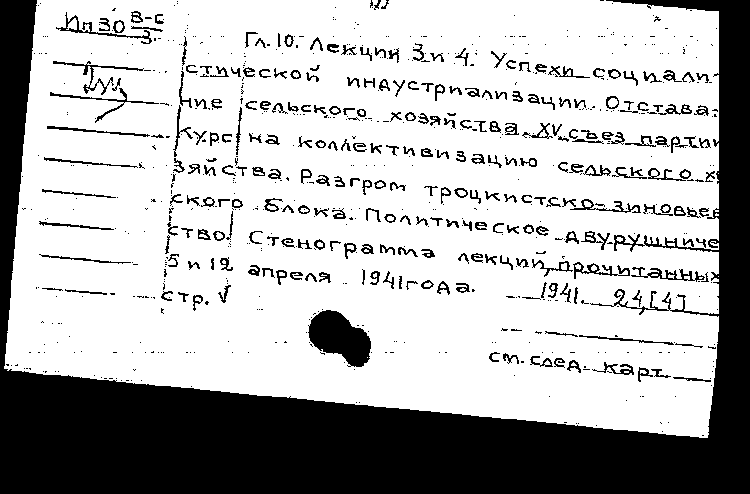 Ип 30 В-С
3.
Гл. 10. Лекции 3 и 4. Успехи социали-
стической индустриализации. Отстава-
ние сельского хозяйства. XV съезд партии
Курс на коллективизацию сельского х
зяйства. Разгром троцкистско-зиновьев
ского блока. Политическое двурушниче
ство. Стенограмма лекций, прочитанных
5 и 12 апреля 1941 года. 1941. 24, [4]
стр. √
см. след. карт.